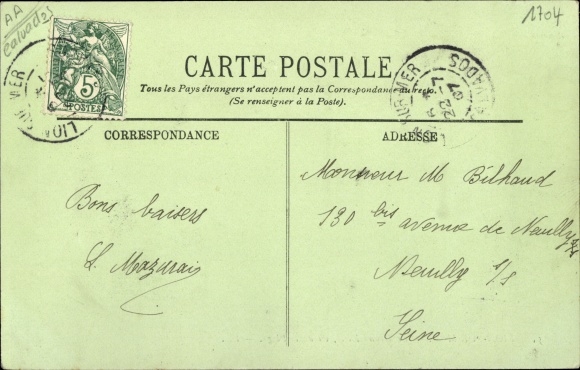 AA
Calvados
1704
5c
POSTES
LION SUR MER
SUR MER
CALVADOS
22 -7
07
CARTE POSTALE
Tous les Pays étrangers n'acceptent pas la Correspondance au recto.
(Se renseigner à la Poste).
CORRESPONDANCE
ADRESSE
Bons baisers
L. Mazurais
Monsieur M Bilhaud
130 bis avenue de Neuilly
Neuilly s/s
Seine